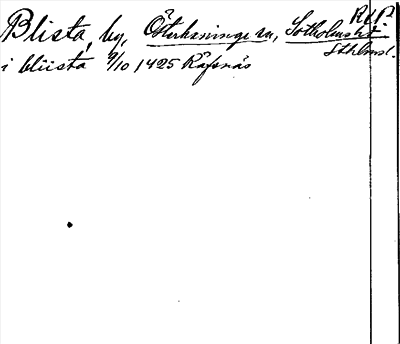 R A P.
Blista, by, Österhaninge sn, Sotholms hd
Sthlmsl.
i bliista 9/10 1425 Räfsnäs